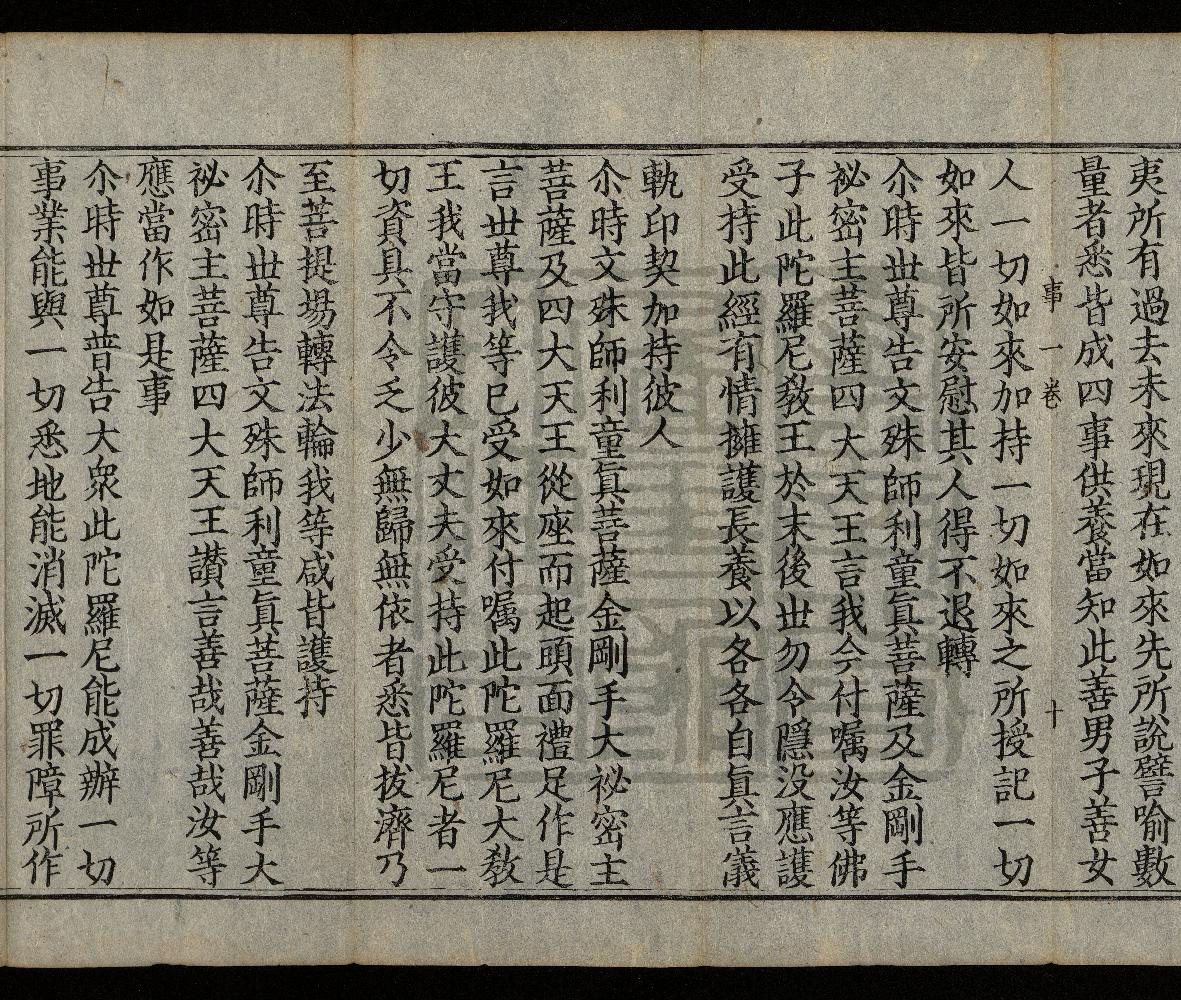 夷所有過去未來現在如來先所說譬喻數
量者悉皆成四事供養當知此善男子善女
事 一卷 十
人一切如來加持一切如來之所授記一切
如來皆所安慰其人得不退轉
尒時世尊告文殊師利童眞菩薩及金剛手
祕密主菩薩四大天王言我今付嘱汝等佛
子此陀羅尼教王於末後世勿令隱没應護
受持此經有情擁護長養以各各自眞言儀
軌印契加持彼人
尒時文殊師利童眞菩薩金剛手大祕密主
菩薩及四大天王從座而起頭面禮足作是
言世尊我等已受如來付嘱此陀羅尼大教
王我當守護彼大丈夫受持此陀羅尼者一
切資具不令乏少無歸無依者悉皆拔濟乃
至菩提場轉法輪我等咸皆護持
尒時世尊告文殊師利童眞菩薩金剛手大
祕密主菩薩四大天王讃言善哉善哉汝等
應當作如是事
尒時世尊普告大衆此陀羅尼能成辦一切
事業能與一切悉地能消滅一切罪障所作